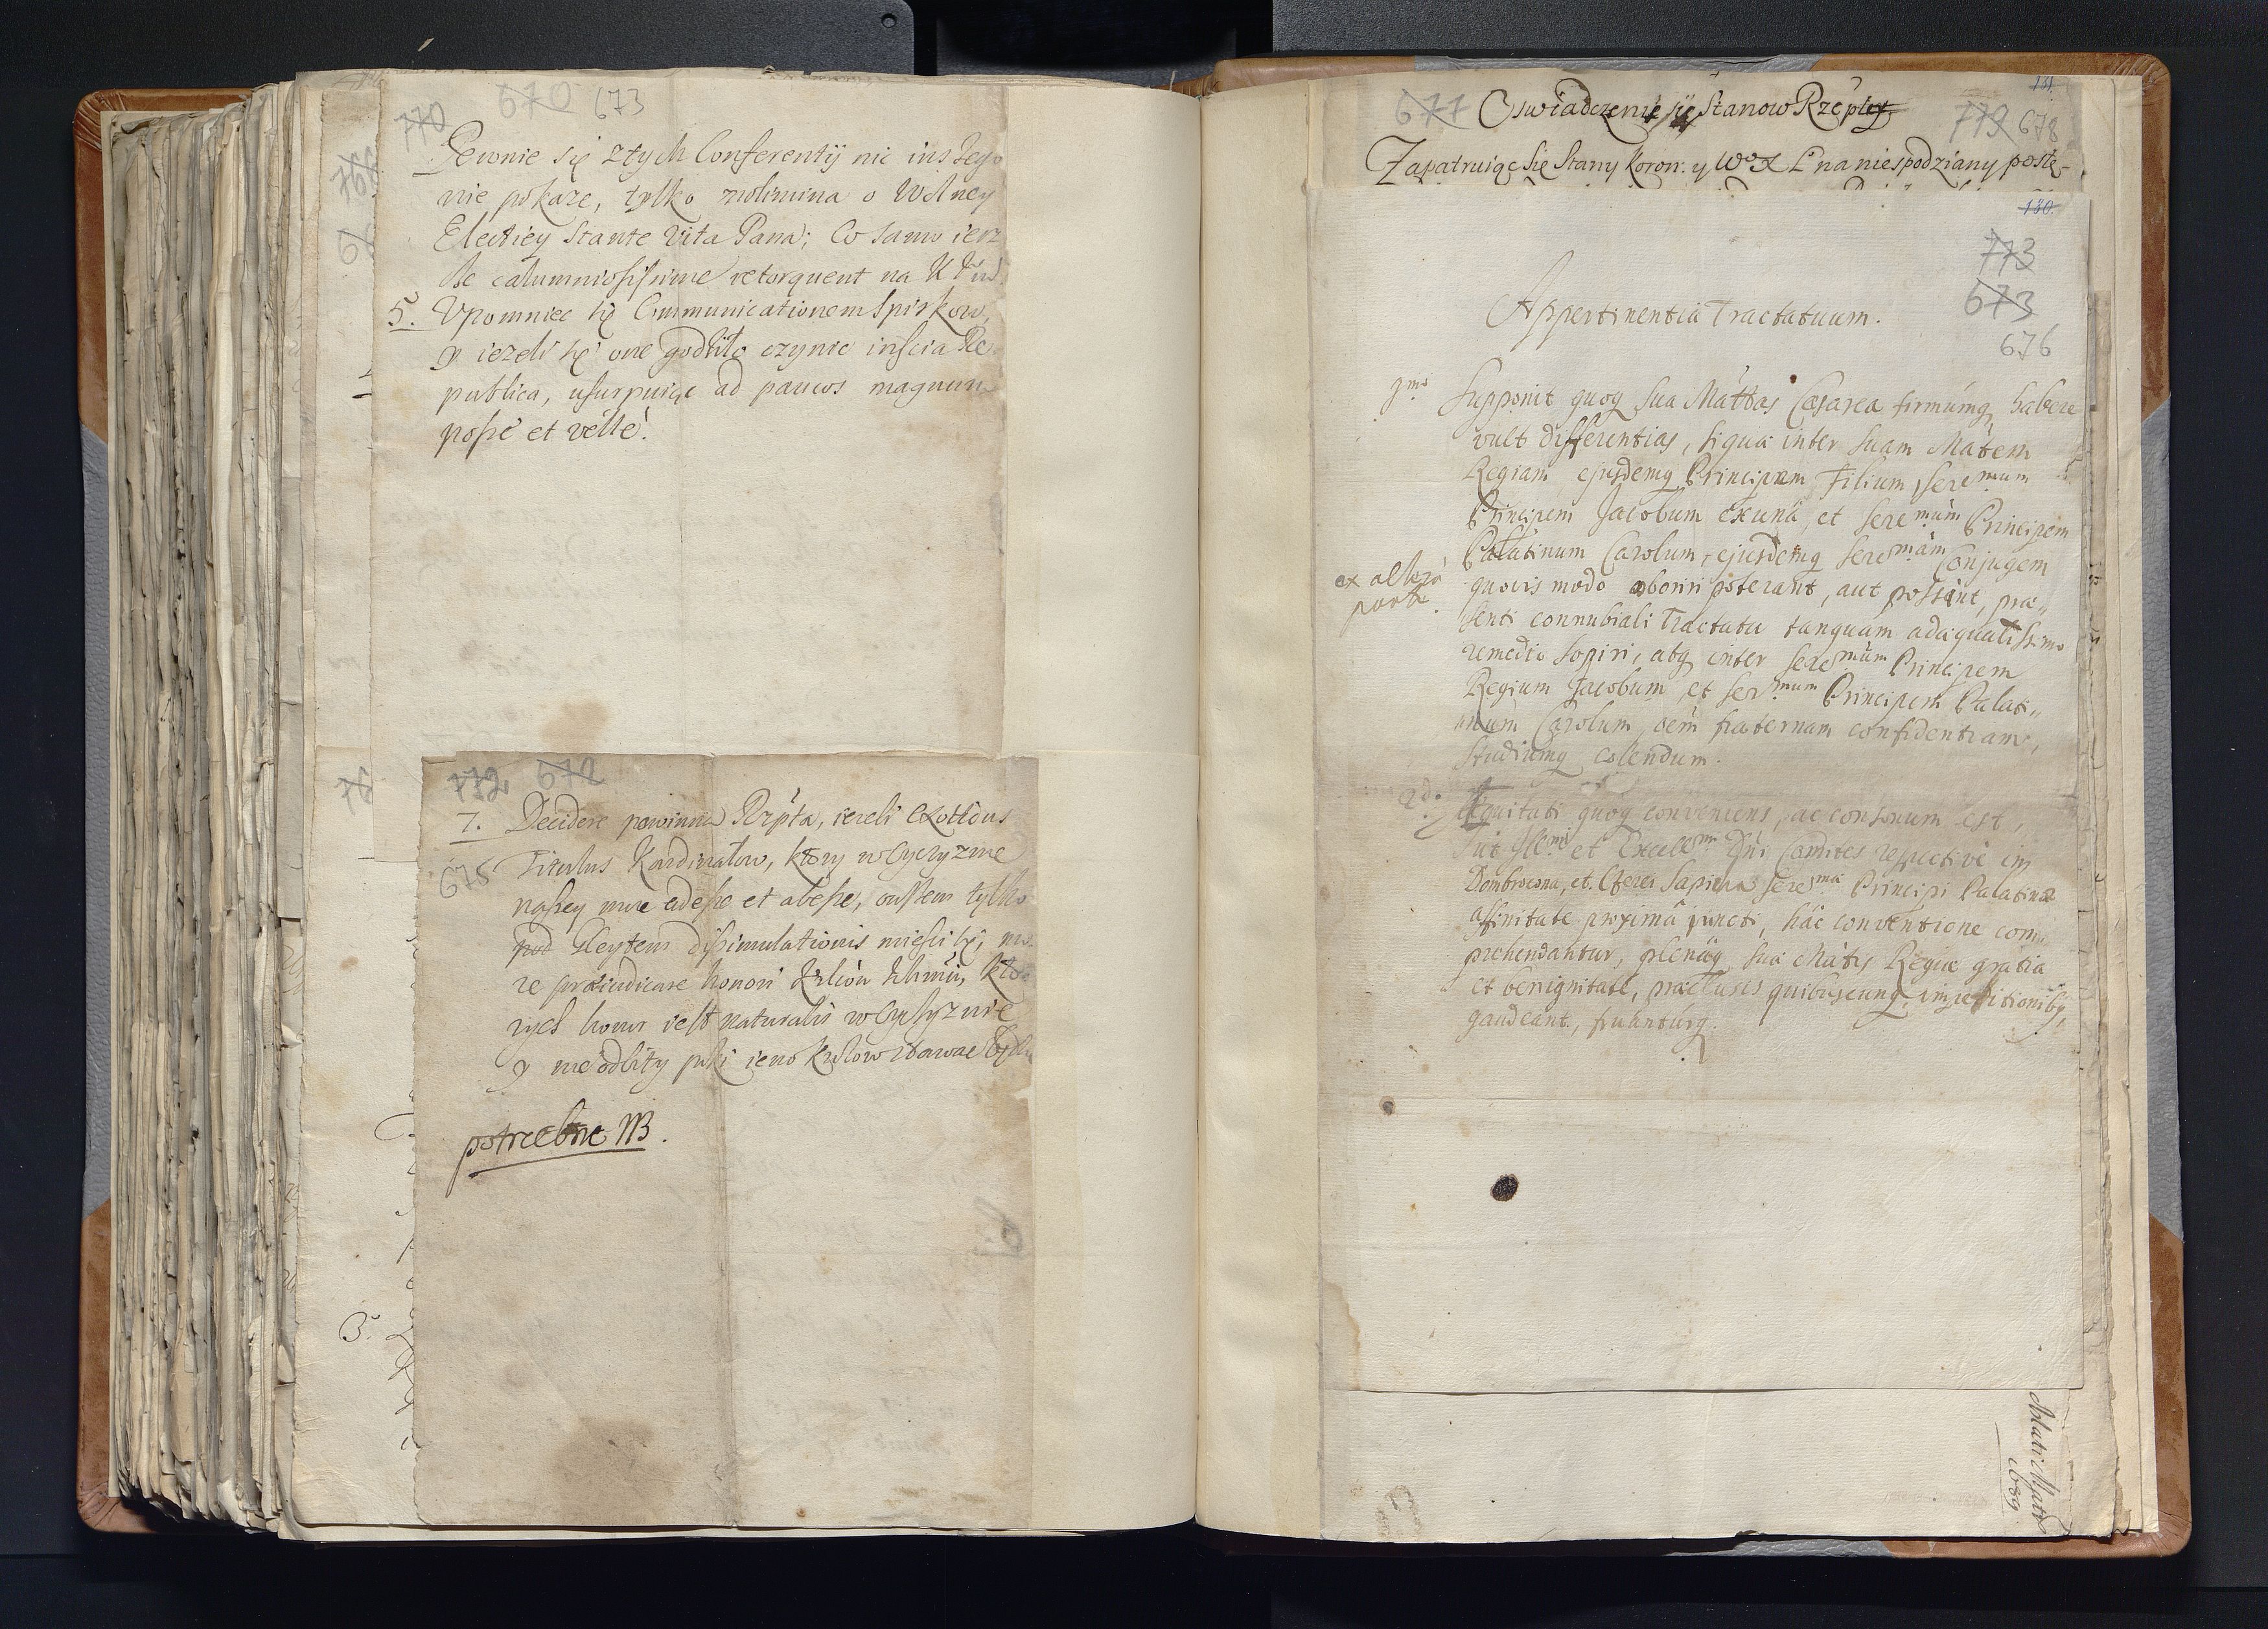 770 670 673
Pewnie się z tych Conferentij nic inszego
nie pokaże, tylko molimina o Wolney
Electiey Stante Vita Pana; Co samo iesz
se calumniosissime retorquent na
5. Upomniec się Communicationem Spiskow,
y iezeli się one godziło czynic inscia Re
publica, usurpuiąc ad paucos magnum
posse et velle.
772 672
7. Decidere powinna Rzpta, iezeli exoticus
675 Titulus Kardinałow, ktory w Oyczyznie
naszey adesse et abesse, owszem tylko
pod Gleytem dissimulationis miesci się, mo
ze praeiudicare honori kto
rych honor iest naturalis w Oyczyznie
y
potrzebne NB.
3.
677 Oswiadczenie się Stanow Rzeplty 131
779 678
Zapatruiąc się Stany Koron: y W X L na niespodziany postę-
130.
773
673
676
Appertinentia Tractatuum.
Supponit quoq Sua Mattas Caesarea firmumq habere
vult differentias, siqua inter Suam Matem
Regiam ejusdemq Principem Filium Seremum
Principem Jacobum ex una, et Seremum Principem
Palatinum Carolum, ejusdemq Seremam Conjugem
ex altera
parte.
quovis modo oboriri poterant, aut possint, prae„
senti connubiali Tractatu tanquam adaequatissimo
remedio sopiri, atq inter Seremum Principem
Regium Jacobum, et Sermum Principem Palati„
num Carolum, oem fraternam confidentiam,
studiumq colendum.
2do. Aequitati quoq conveniens, ac consonum est,
Comites respective in
Dombrowna, et Sapieha Seremae Principi Palatinae
affinitate proxima juncti, hac conventione com„
prehendantur, plenaq Suae Matis Regiae gratia
et benignitate, praeclusis quibuscunq impetitionibq,
gaudeant, fruanturq.
1689